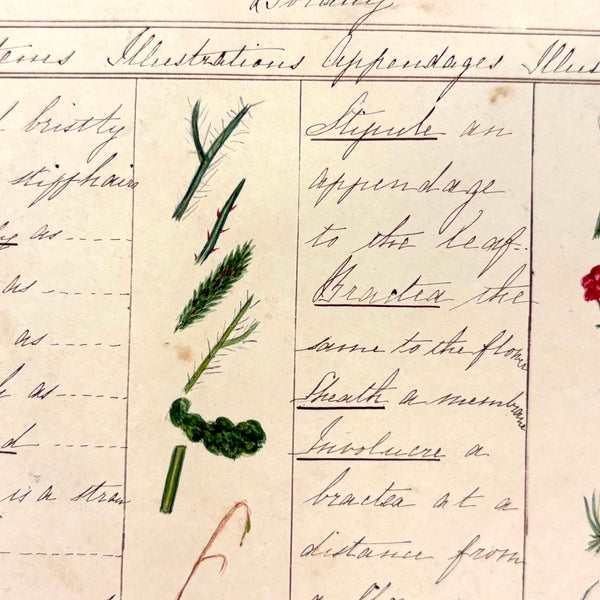 Botany
Illustrations Appendages
bristly
stiff hairs
as
as
as
as
is a straw
Stipule an
appendage
to the leaf.
Bractea the
same to the flower
Sheath a membrane
Involucre a
bractea at a
distance from